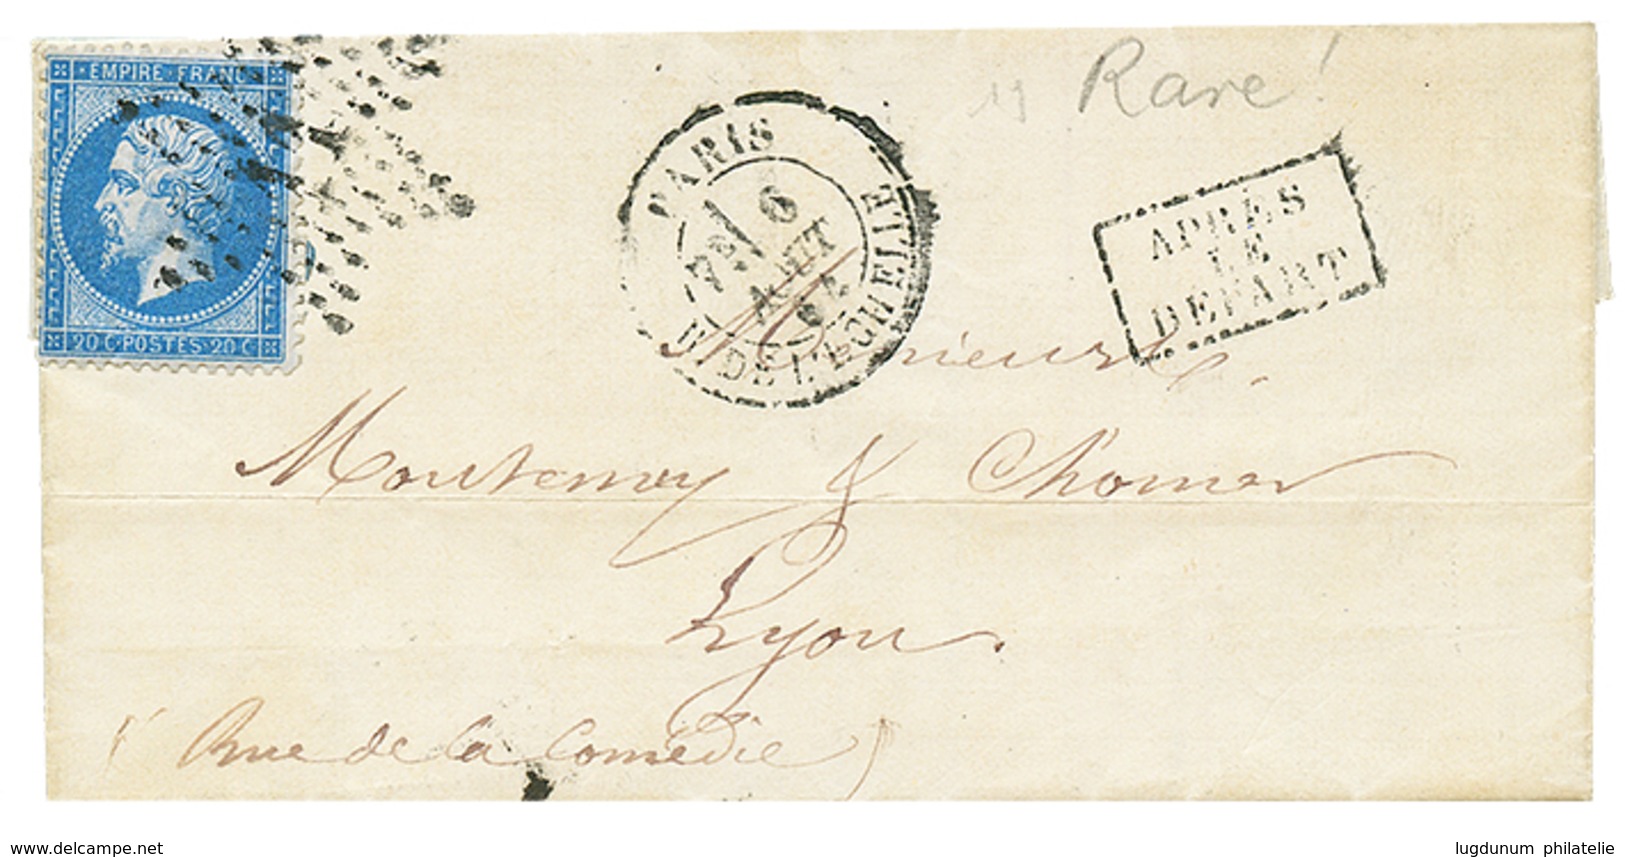 EMPIRE FRANC
20 C·POSTES·20 C
PARIS
6
AOUT
R. DE L'ECHELLE
Rare!
APRÈS
LE
DEPART
Messieurs
Monterney & Chomer
Lyon.
(Rue de la Comédie)
www.delcampe.net
lugdunum philatelie